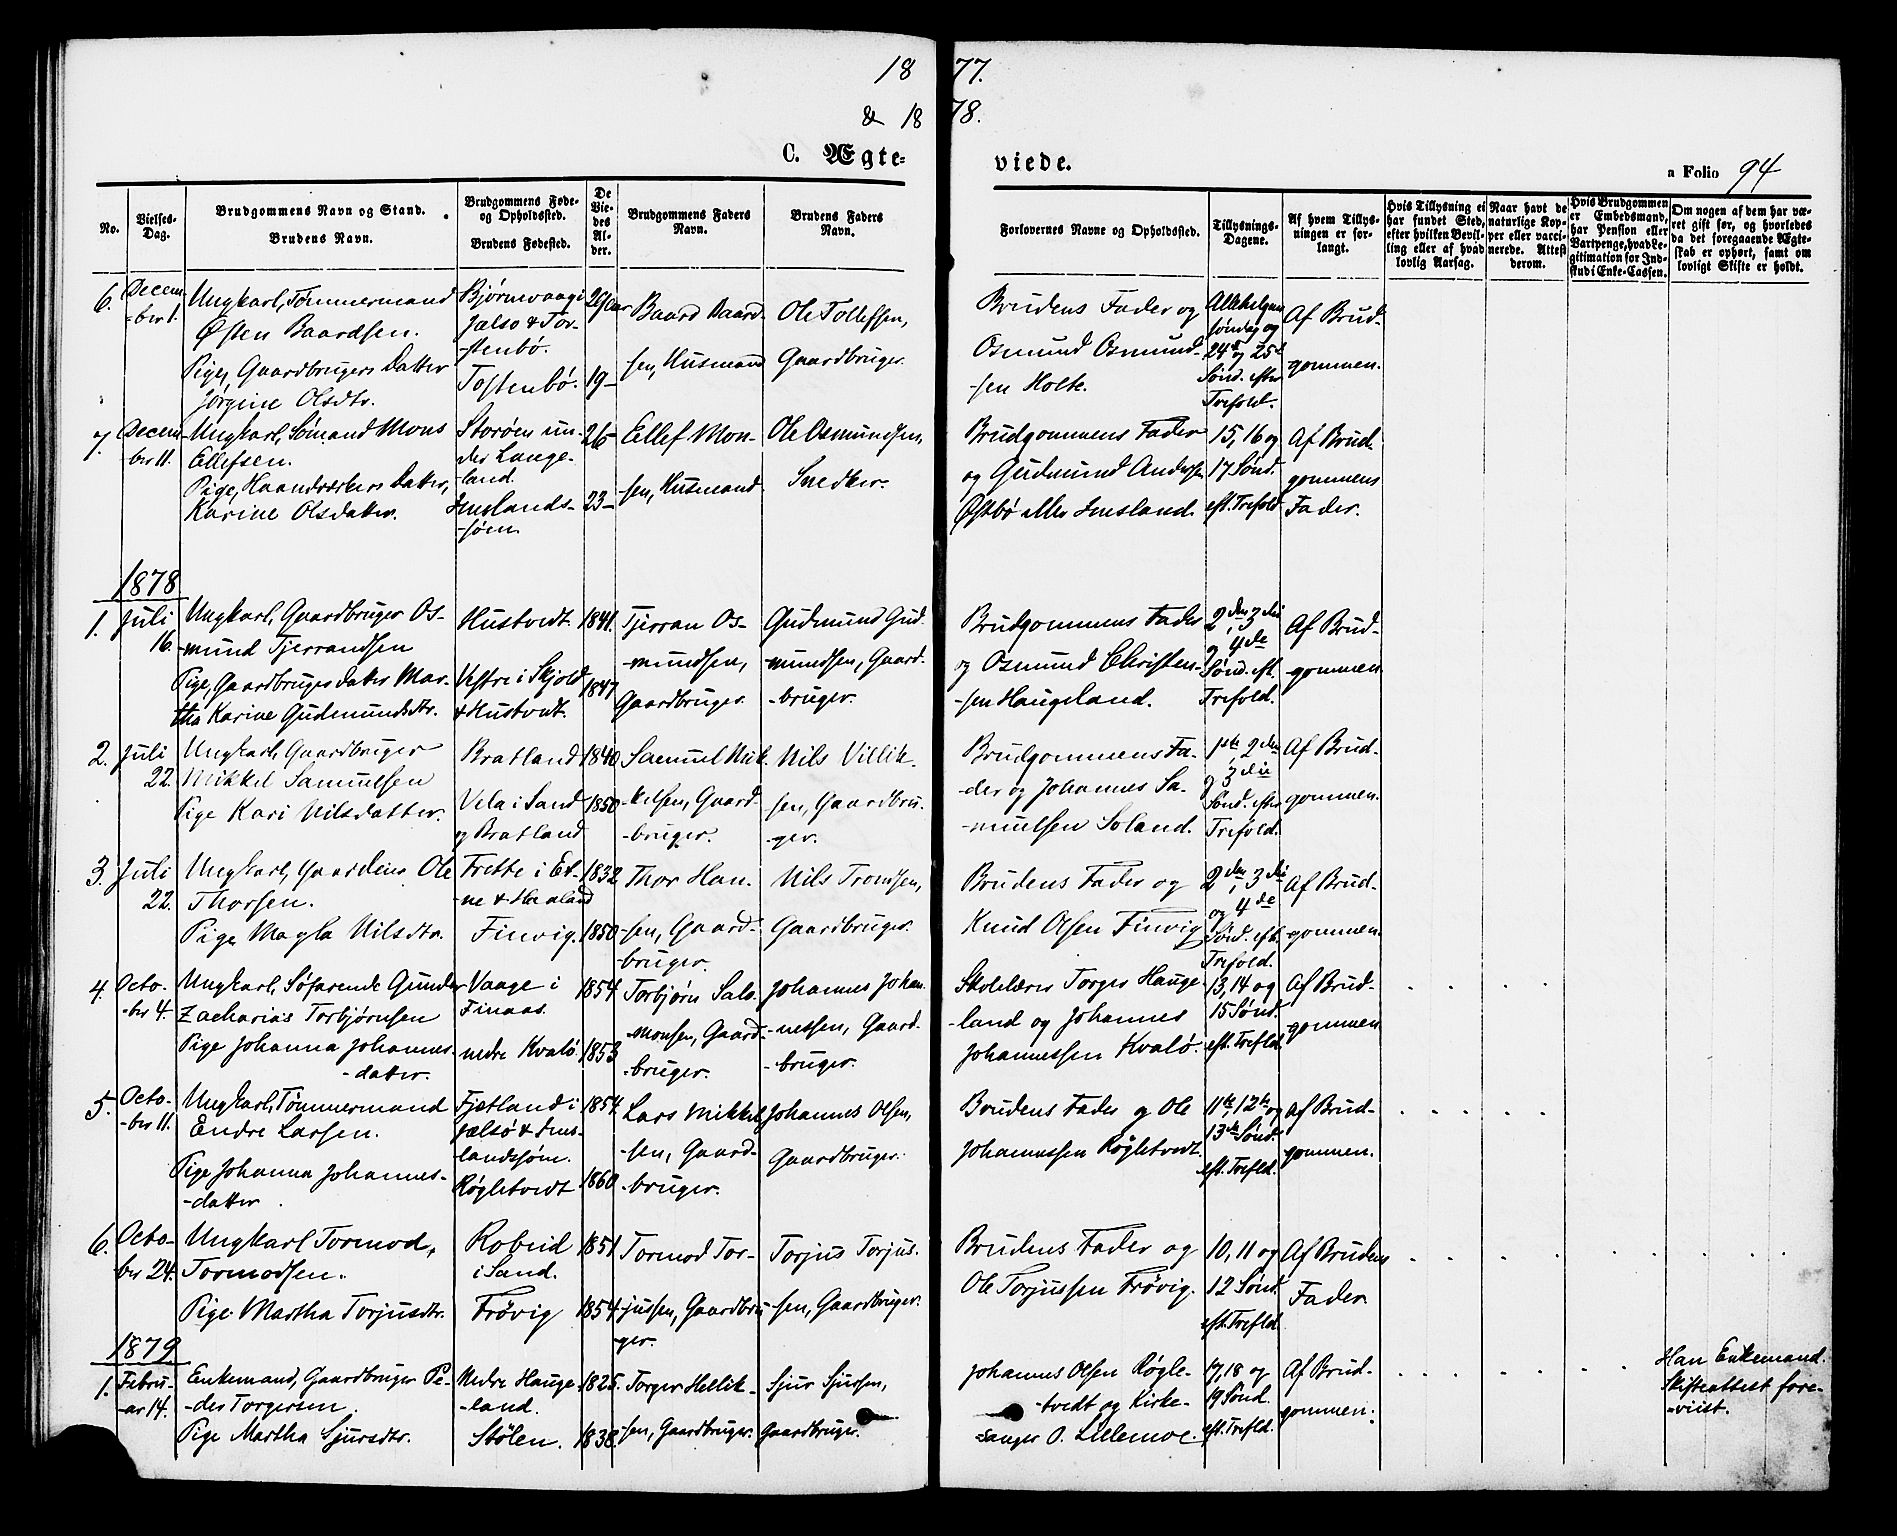 18 77.
& 18 78.
C. Ægte-
viede.
a Folio 94
No.
Vielses-
Dag.
Brudgommens Navn og Stand.
Brudens Navn.
Brudgommens Føde-
og Opholdssted.
Brudens Fødested.
De
Vie-
des
Al-
der.
Brudgommens Faders
Navn.
Brudens Faders
Navn.
Forlovernes Navne og Opholdssted.
Tillysnings-
Dagene.
Af hvem Tillys-
ningen er for-
langt.
Hvis Tillysning ei
har fundet Sted,
efter hvilken Bevil-
ling eller af hvad
lovlig Aarsag.
Naar havt de
naturlige Kop-
per eller vacci-
nerede. Attest
derom.
Hvis Brudgommen
er Embedsmand,
har Pension eller
Vartpenge, hvad Le-
gitimation for Ind-
skud i Enke-Cassen.
Om nogen af dem har væ-
ret gift før, og hvorledes
da det foregaaende Ægte-
skab er ophørt, samt om
lovligt Skifte er holdt.
6.
Decem-
-ber 1.
Ungkarl, Tømmermand
Østen Baardsen.
Pige, Gaardbrugers Datter
Jørgine Olsdtr.
Bjørnevaag i
Jælsø & Tor-
-stenbö.
Tostenbö.
29 aar
19 –
Baard Baard-
sen, Husmand
Ole Tollefsen,
Gaardbruger.
Brudens Fader og
Osmund Osmund-
-sen Holte.
Allehelgens
söndag og
24de og 25d
Sönd. efter
Trefold.
Af Brud-
gommen.
7.
Decem-
ber 11.
Ungkarl, Sömand Mons
Ellefsen.
Pige, Haandværkers Datter,
Karine Olsdatter.
Storöen un-
der Lange-
land.
Imslands-
-sjöen.
26 –
23 –
Ellef Mon-
sen, Husmand.
Ole Osmundsen,
Snedker.
Brudgommens Fader
og Gudmund Andersen
Østbö aller Imsland.
15, 16 og
17 Sönd.
eft. Trefold
Af Brud-
gommens
Fader.
1878
1.
Juli
16.
Ungkarl, Gaardbruger Os-
-mund Tjerrandsen
Pige, Gaardbruger datter Mar-
tha Karine Gudmundsdtr.
Hustvedt.
Vestre i Skjold
& Hustvedt.
1841.
1847
Tjerran Os-
-mundsen,
Gaardbruger.
Gudmund Gud-
-mundsen, Gaard-
-bruger.
Brudgommens Fader
og Osmund Christen-
-sen Haugeland.
2den, 3die
og 4de
Sönd. eft.
Trefold.
Af Brud-
gommen.
2.
Juli
22.
Ungkarl, Gaardbruger
Mikkel Samuelsen
Pige Kari Nilsdatter.
Bratland
Vela i Sand
og Bratland
1840
1850
Samuel Mik-
-kelsen, Gaard-
-bruger.
Nils Villik-
sen, Gaardbru-
-ger.
Brudgommens Fa-
-der og Johannes Sa-
-muelsen Soland.
1ste, 2den
og 3die
Sönd. efter
Trefold.
Af Brud-
gommen.
3.
Juli
22.
Ungkarl, Gaardeier Ole
Thorsen.
Pige Magla Nilsdtr.
Frette i Et-
-ne &
Finvig.
1832
1850
Thor Han-
-sen, Gaard-
-bruger.
Nils Tromsen,
Gaardbruger.
Brudens Fader og
Knud Olsen Finvig
2den, 3die
og 4de
Sönd. eft.
Trefold.
Af Brud-
gommen.
4.
Octo-
-ber 4.
Ungkarl, Söfarende Gunder
Zacharias Torbjörnsen
Pige Johanna Johannes-
-datter.
Vaage i
Finaas.
nedre Kvalö
1854
1853
Torbjörn Salo-
-monsen, Gaard-
-bruger.
Johannes Johan-
-nessen, Gaard-
-bruger.
Skolelærer Torger Hauge-
-land og Johannes
Johannessen Kvalö.
13, 14 og
15 Sönd.
eft. Trefld.
Af Brud-
gommen
5.
Octo-
-ber 11.
Ungkarl, Tömmermand
Endre Larsen.
Pige Johanna Johannes-
-datter.
Fjetland i
Jælsö & Ims-
landsjöen.
Røgletvedt
1854.
1860
Lars Mikkel-
-sen, Gaard-
-bruger.
Johannes Olsen,
Gaardbruger.
Brudens Fader og Ole
Johannessen Røgletvedt.
11te, 12te og
13de Sönd.
eft. Trefld.
af Brud-
gommen.
6.
Octo-
ber 24.
Ungkarl Tormod,
Tormodsen.
Pige Martha Torjusdtr.
i Sand.
Frövig
1851.
1854
Tormod Tor-
-jussen, Gaardbru-
ger.
Torjus Torjus-
-sen, Gaardbruger.
Brudens Fader og
Ole Torjussen Frövig.
10, 11 og
12 Sönd.
eft. Trefld.
Af Brudens
Fader.
1879
1.
Febru-
-ar 14.
Enkemand, Gaardbruger Pe-
-der Torgersen.
Pige Martha Sjursdtr.
Nedre Hauge-
-land.
Stölen.
1825.
1838.
Torger Hellik-
sen, Gaardbruger.
Sjur Sjursen,
Gaardbruger.
Johannes Olsen Røgle-
-tvedt og Kirke-
-sanger O. Lillemoe.
17, 18 og
19 Sönd.
eft. Trefld.
Af Brud-
gommen.
Han Enkemand.
Skifteattest fore-
-viist.